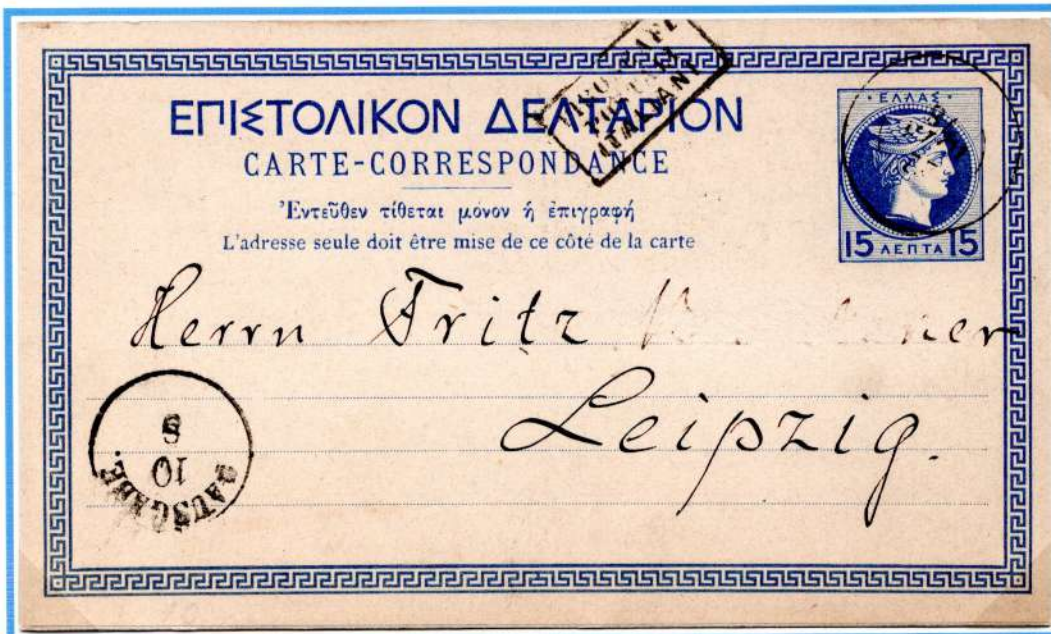 ΕΠΙΣΤΟΛΙΚΟΝ ΔΕΛΤΑΡΙΟΝ
CARTE-CORRESPONDANCE
Ἐντεῦθεν τίθεται μόνον ἡ ἐπιγραφή
L'adresse seule doit être mise de ce côté de la carte
ΕΛΛΑΣ
15 ΛΕΠΤΑ 15
Herrn Fritz
Leipzig.
S
10
AUSGABE.